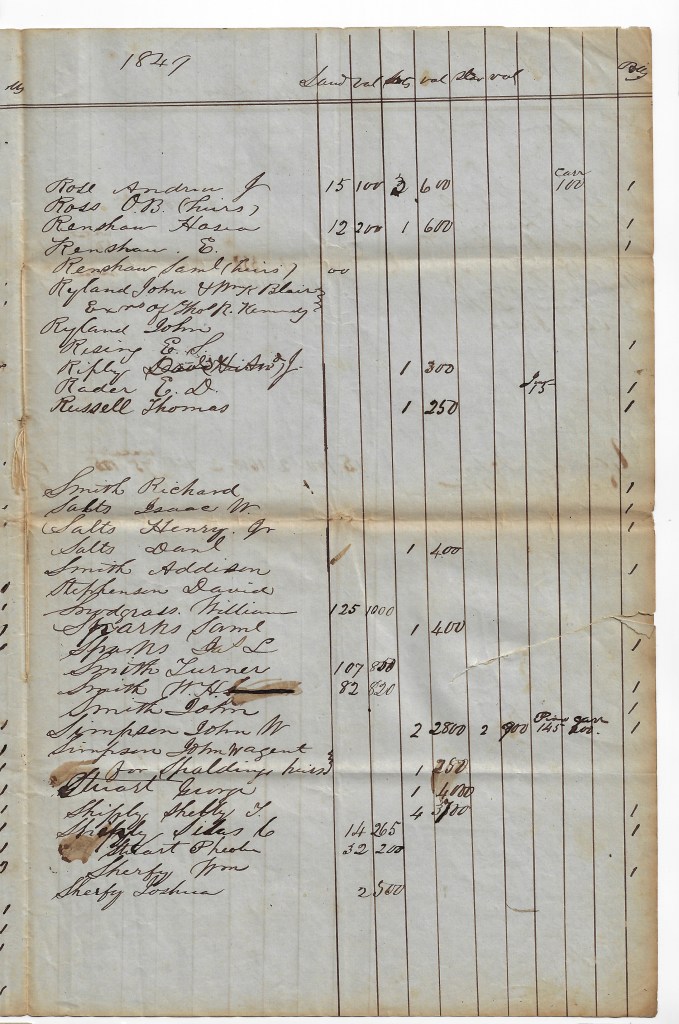 1849
Land val lots val slav val Polls
olls
carr
Rose Andrew J 15 100 3 600 100 1
Ross O.B. (heirs)
Renshaw Hosea 12 200 1 600 1
Renshaw. E. 1
Renshaw Saml (heirs) 00
Ryland John & Wm K Blair
Exrs of Thos R. Kennedy
Ryland John
Rising E. S. 1
Ripley J. 1 300 1
Rader E. D. 175 1
Russell Thomas 1 250 1
Smith Richard 1
Salts Isaac W. 1
Salts Henry. Jr 1
Salts Danl 1 400
Smith Addison 1
Stephenson David
Snodgrass. William 125 1000
Sparks Saml 1 400
Sparks L 1
Smith Turner 107 850
Smith W. H 82 820 1
Smith John 1
carr
Simpson John W 2 2800 2 900 145 1
Simpson John W agent
for Spaldings heirs 1 250
Stuart George 1 4000
Shipley Shelby T. 4 1
Shipley Silas C 14 265 1
Stuart Pheobe 32 200
Sherfy Wm 1
Sherfy Joshua 2 500